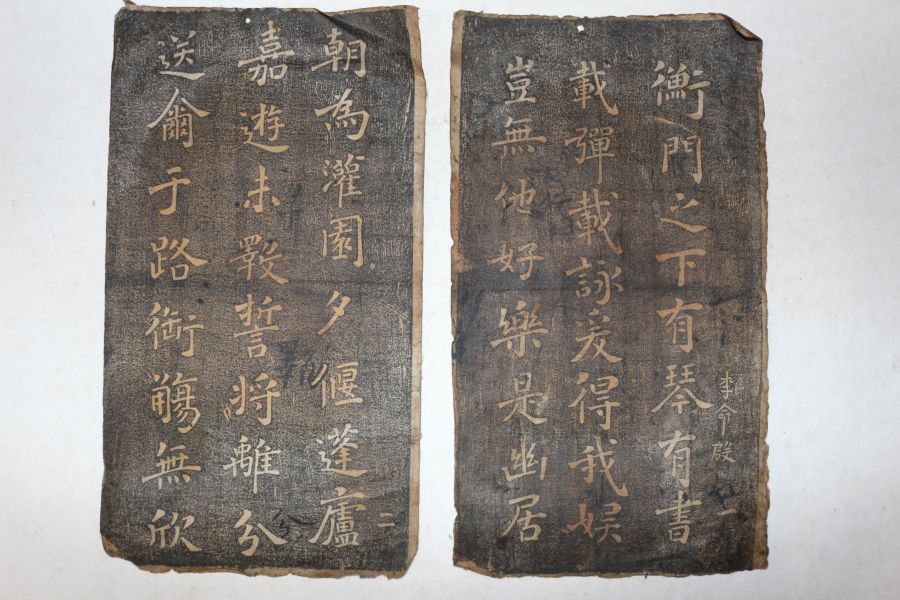 李命殷
一
衡門之下有琴有書
載彈載詠爰得我娛
豈無他好樂是幽居
朝為灌園夕偃蓬廬
二
嘉遊未斁誓將離分
送爾于路銜觴無欣